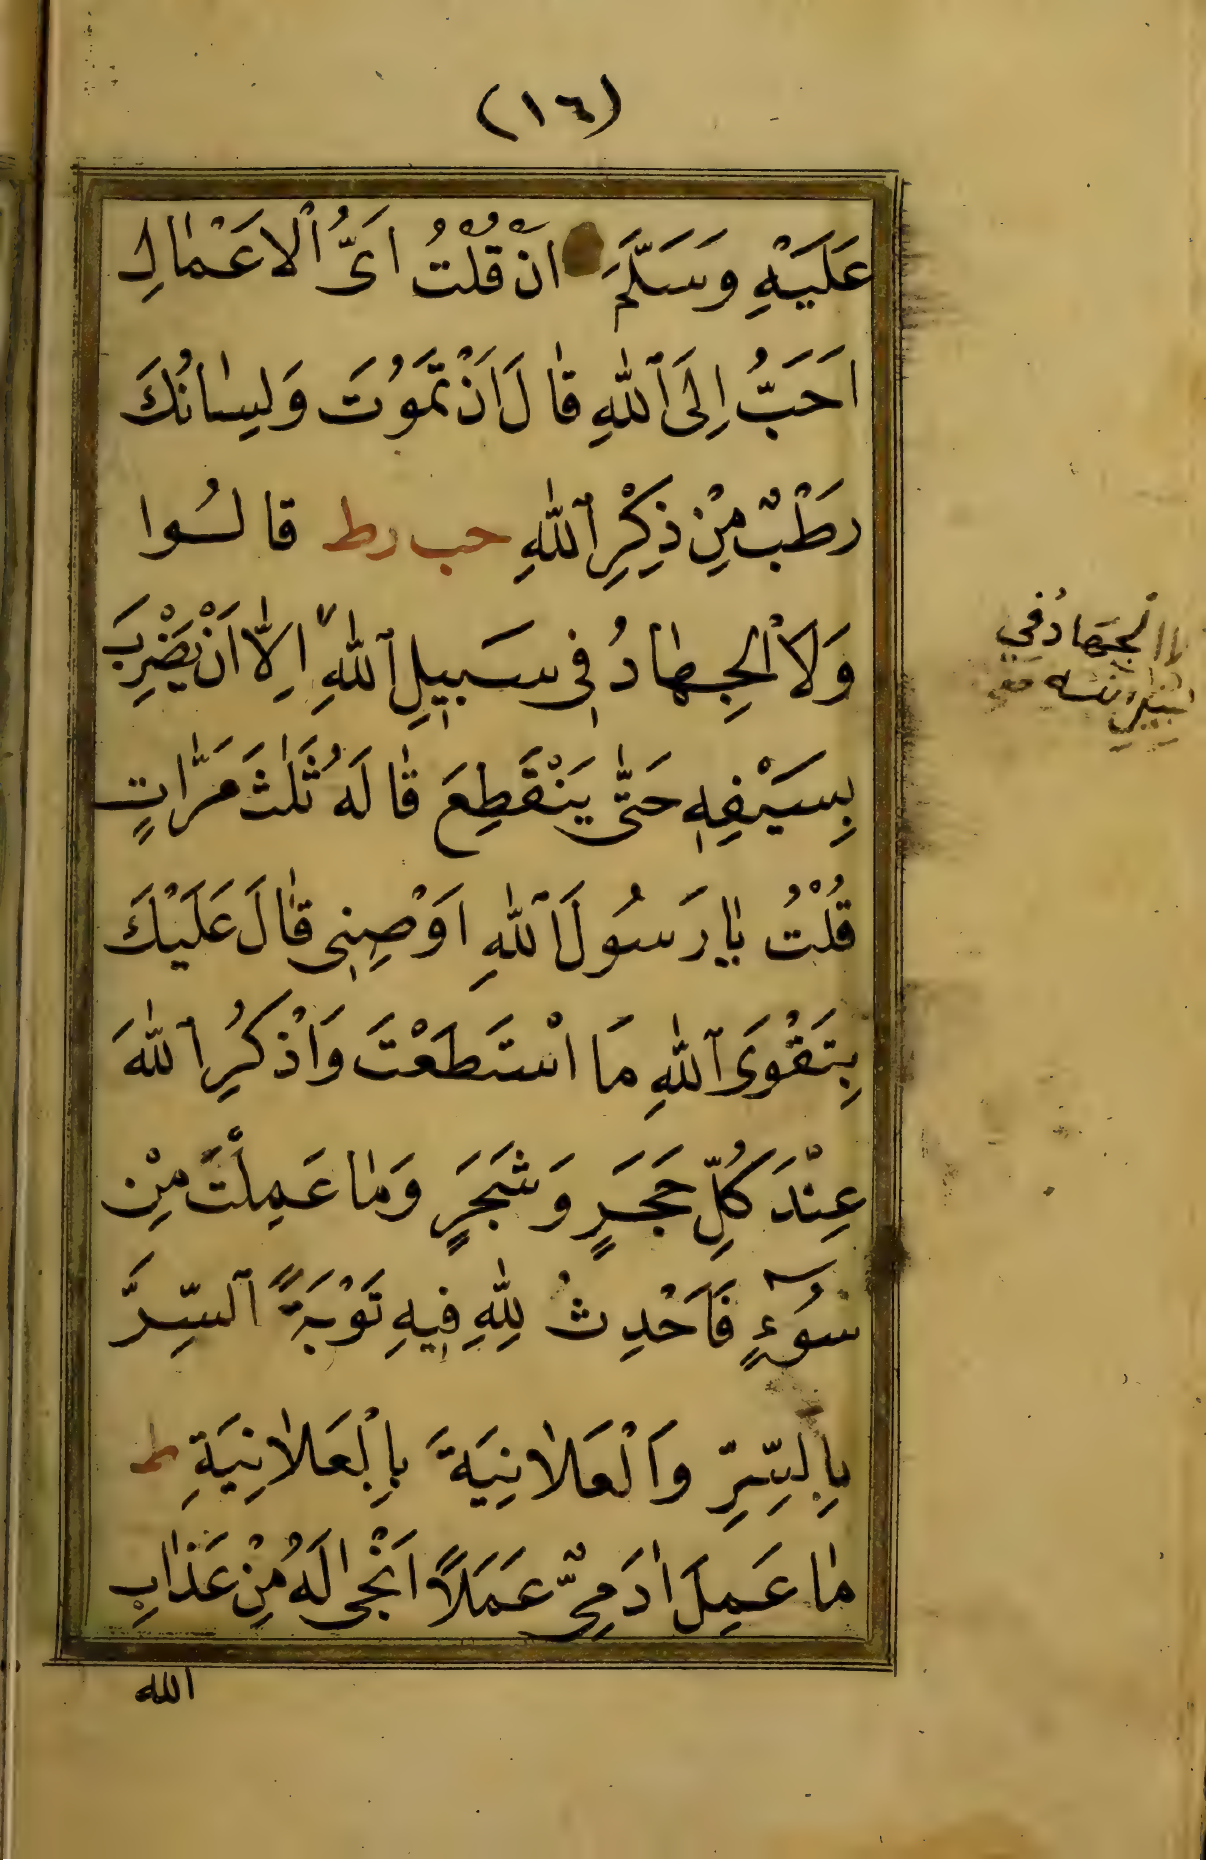 (١٦)
عَلَيْهِ وَسَلَّمَ اَنْ قُلْتُ اَىُّ ٱلْاَعْمٰالِ
اَحَبُّ اِلَى ٱللّٰهِ قٰالَ اَنْ تَمَوُتَ وَلِسٰانُكَ
رَطْبٌ مِنْ ذِكْرِ ٱللّٰهِ حب رط قالُوا
وَلَا ٱلْجِهٰادُ فِى سَبِيلِ ٱللّٰهِ اِلَّا اَنْ يَضْرِبَ
بِسَيْفِهِ حَتّٰى يَنْقَطِعَ قٰالَهُ ثَلٰثَ مَرّٰاتٍ
قُلْتُ يٰا رَسُولَ ٱللّٰهِ اَوْصِنِى قٰالَ عَلَيْكَ
بِتَقْوَى ٱللّٰهِ مَا اسْتَطَعْتَ وَاذْكُرِ ٱللّٰهَ
عِنْدَ كُلِّ حَجَرٍ وَشَجَرٍ وَمٰا عَمِلْتَ مِنْ
سُوۤءٍ فَاَحْدِثْ لِلّٰهِ فِيهِ تَوْبَةً ٱلسِّرَّ
بِالسِّرِّ وَالْعَلٰانِيَةَ بِالْعَلٰانِيَةِ ط
مٰا عَمِلَ اٰدَمِىٌّ عَمَلًا اَنْجٰى لَهُ مِنْ عَذٰابِ
الله
الجهَادُ في